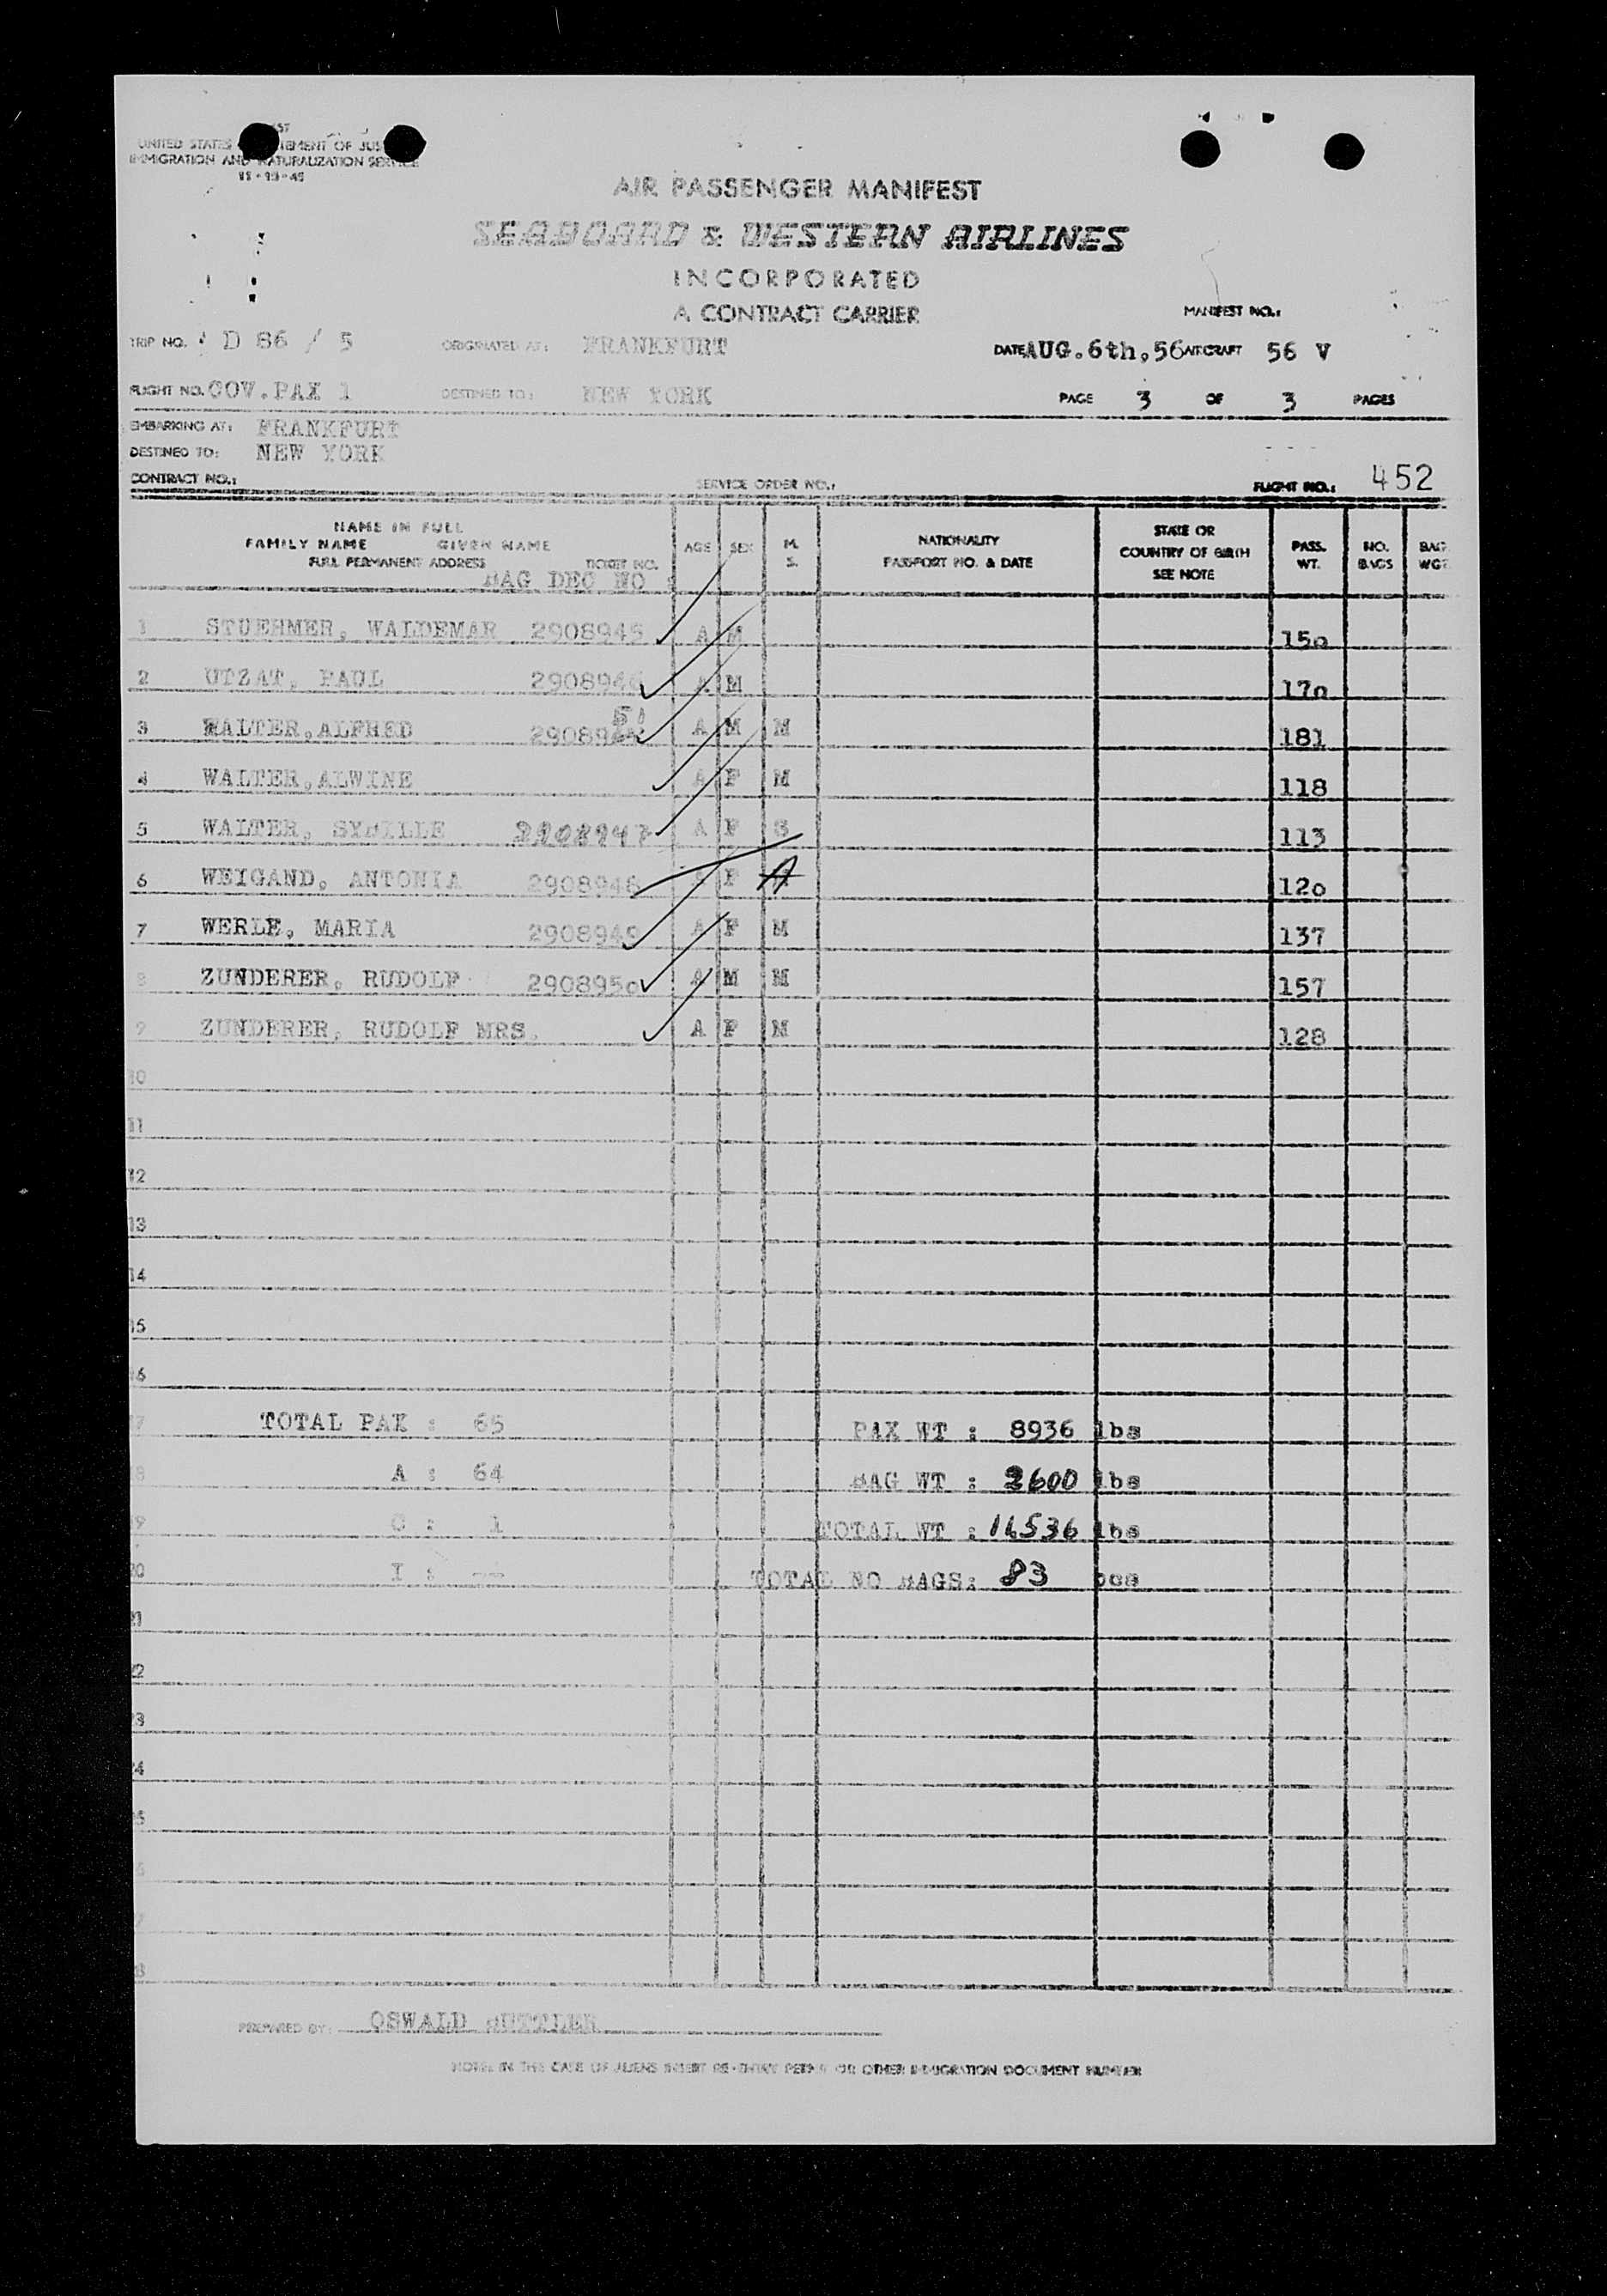 UNITED STATES OF
IMMIGRATION AND NATURALIZATION SERVICE
11-15-45
AIR PASSENGER MANIFEST
SEABOARD & WESTERN AIRLINES
INCORPORATED
A CONTRACT CARRIER
MANIFEST NO.:
TRIP NO. D 86 / 5 ORIGINATED AT: FRANKFURT DATE AUG.6th,56 AIRCRAFT 56 V
FLIGHT NO. GOV.PAX 1 DESTINED TO: NEW YORK PAGE 3 OF 3 PAGES
EMBARKING AT: FRANKFURT
DESTINED TO: NEW YORK
CONTRACT NO.: SERVICE ORDER NO.: FLIGHT NO.: 452
NAME IN FULL
FAMILY NAME GIVEN NAME
FULL PERMANENT ADDRESS TICKET NO.
BAG DEC NO :
AGE SEX M. S. NATIONALITY PASSPORT NO. & DATE STATE OR COUNTRY OF BIRTH SEE NOTE PASS. WT. NO. BAGS BAG WGT.
1 STUEHMER, WALDEMAR 2908945 A M 15o
2 UTZAT, PAUL 2908946 A M 17o
3 WALTER,ALFRED 29089 51 A M M 181
4 WALTER,ALWINE A F M 118
5 WALTER, SYBILLE 2908947 A F S 113
6 WEIGAND, ANTONIA 2908948 F A 12o
7 WERLE, MARIA 2908949 A F M 137
8 ZUNDERER, RUDOLF 290895o A M M 157
9 ZUNDERER, RUDOLF MRS. A F M 128
10
11
12
13
14
15
16
17 TOTAL PAX : 65 PAX WT : 8936 lbs
18 A : 64 BAG WT : 2600 lbs
19 C : 1 TOTAL WT : 11536 lbs
20 I : -- TOTAL NO BAGS: 83 pcs
21
22
23
24
25
26
27
28
PREPARED BY: OSWALD
NOTE: IN THE CASE OF ALIENS INSERT RE-ENTRY PERMIT OR OTHER IMMIGRATION DOCUMENT NUMBER